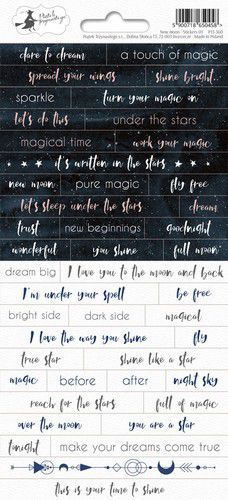 Piątek Trzynastego
5 900718 650458 >
New moon - Stickers 03 P13-360
Piątek Trzynastego sp. z o.o.
Made in Poland
dare to dream a touch of magic
spread your wings shine bright...
sparkle turn your magic on
let's do this under the stars
magical time work your magic
it's written in the stars
new moon pure magic fly free
let's sleep under the stars dream
trust new beginnings goodnight
wonderful you shine full moon
dream big I love you to the moon and back
I'm under your spell be free
bright side dark side magical
I love the way you shine fly
true star shine like a star
magic before after night sky
reach for the stars full of magic
over the moon you are a star
tonight make your dreams come true
this is your time to shine